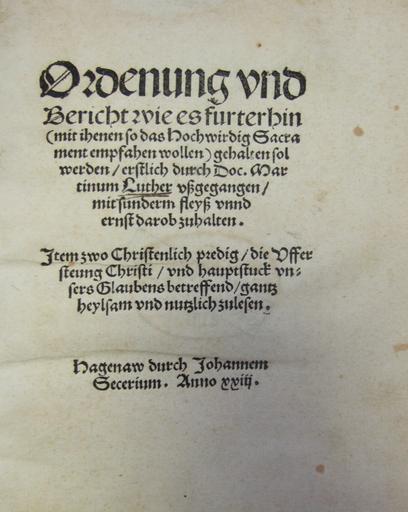 Ordenung vnd
Bericht wie es furterhin
(mit ihenen so das Hochwirdig Sacra
ment empfahen wollen) gehalten sol
werden / erstlich durch Doc. Mar
tinum Luther vßgegangen /
mit sunderm fleyß vnnd
ernst darob zuhalten.
Item zwo Christenlich predig / die Vffer
steung Christi / vnd hauptstuck vn-
sers Glaubens betreffend / gantz
heylsam vnd nutzlich zulesen.
Hagenaw durch Johannem
Secerium. Anno xxiij.